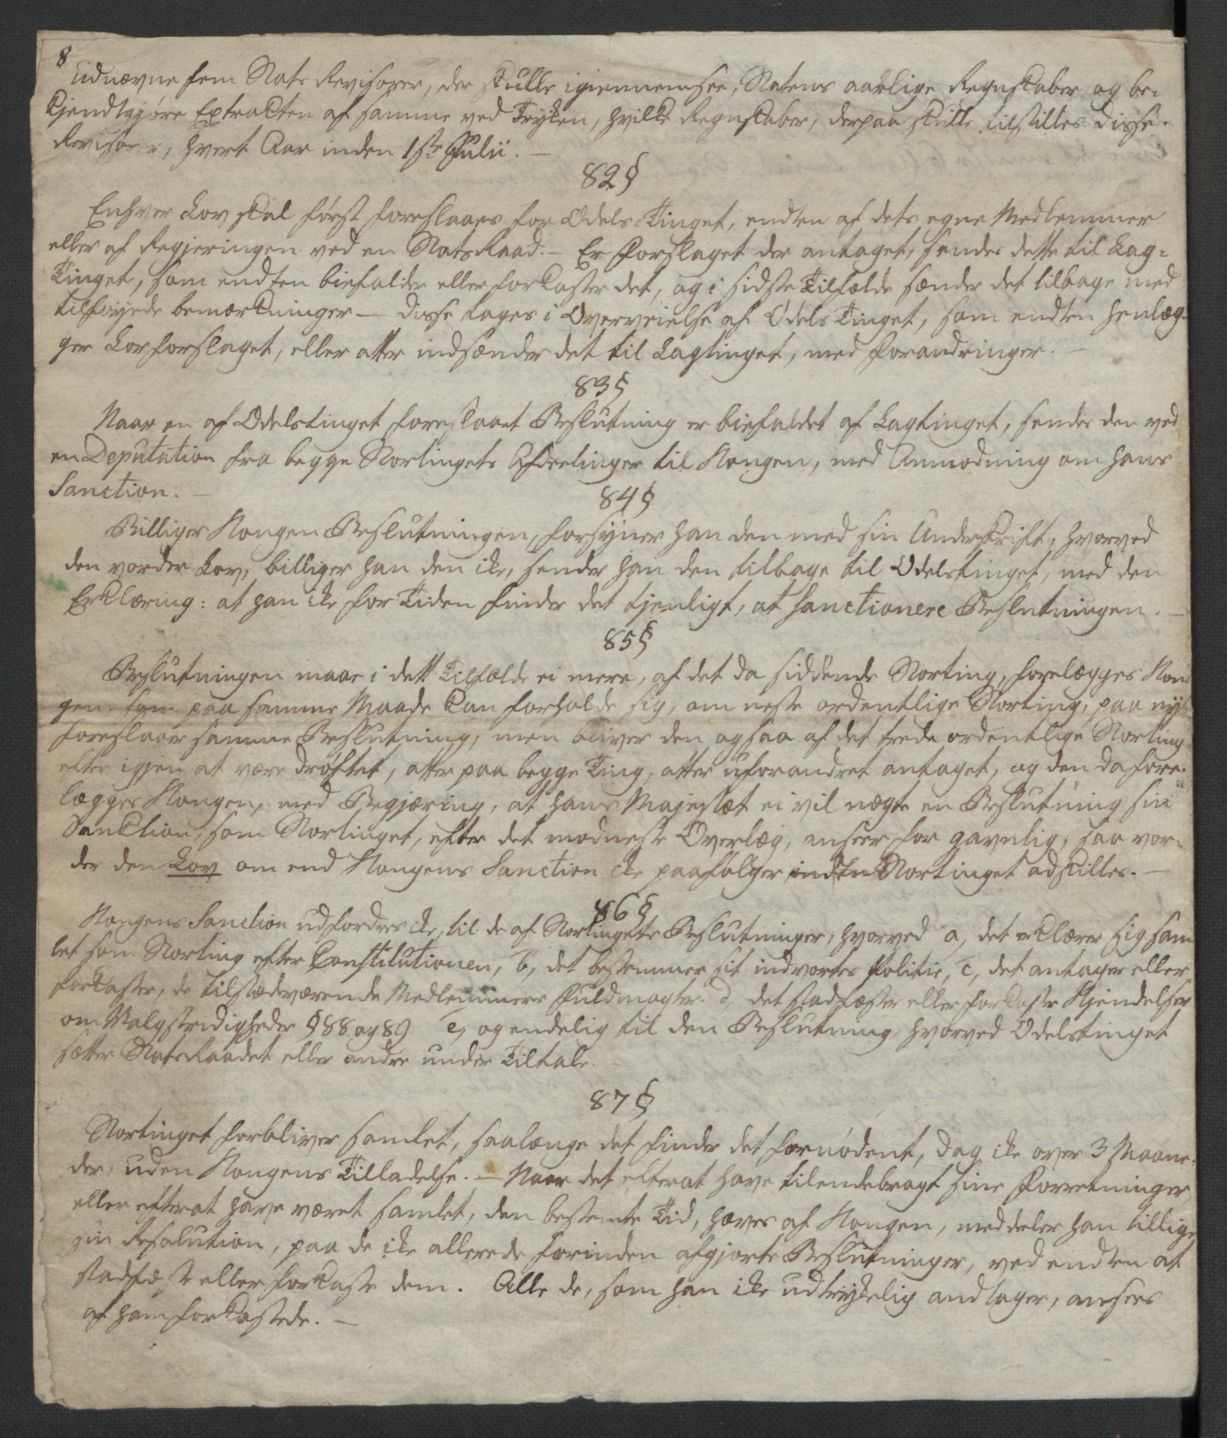 8
udnævne fem Stats Revisorer, der skulle igiennemsee, Statens aarlige Regnskaber og be-
kjendtgjøre Extrakten af samme ved Tryken, hvilke Regnskaber, derpaa skulle tilstilles disse
Revisorer, hvert Aar inden 1ste Julii. —
82 §
Enhver Lov skal først foreslaaes for Odels Tinget, endten af dets egne Medlemmer
eller af Regjeringen ved en Statsraad. — Er Forslaget der antaget, sendes dette til Lag-
Tinget, som endten biefalder eller forkaster det, og i sidste Tilfælde sænder det tilbage med
tilføyede bemærkninger — disse tages i Overveielse af Odels Tinget, som endten henlæg-
ger Lovforslaget, eller atter indsænder det til Lagtinget, med forandringer. —
83 §
Naar en af Odelstinget foreslaaet Beslutning er biefaldet af Lagtinget, sendes den ved
en Deputation fra begge Stortingets Afdeelinger til Kongen, med Anmodning om hans
Sanction. —
84 §
Billiger Kongen Beslutningen, forsyner han den med sin Underskrift, hvorved
den vorder Lov, billiger han den ike, sender han den tilbage til Odelstinget, med den
Erklæring: at han ike for Tiden finder det tjenligt, at Sanctionere Beslutningen. —
85 §
Beslutningen maae i dette Tilfælde ei mere, af det da siddende Storting, forelægges Kon-
gen, som paa samme Maade kan forholde sig, om neste ordentlige Storting, paa ny
foreslaaer samme Beslutning, men bliver den ogsaa af det trede ordentlige Storting
efter igjen at være drøftet, atter paa begge Ting, atter uforandret antaget, og den da fore-
lægges Kongen, med Begjæring, at hans Majestæt ei vil nægte en Beslutning sin
Sanktion, som Stortinget, efter det modneste Overlæg, anseer for gavnlig, saa vor-
der den Lov om end Kongens Sanction ike paafølger inden Stortinget adskilles. —
86 §
Kongens Sanction udfordres ike, til de af Stortingets Beslutninger, hvorved a, det erklærer sig sam-
let som Storting efter Constitutionen, b, det bestemmer sit indvortes Politie, c, det antager eller
forkaster, de tilstædeværende Medlemmers Fuldmagter. d, det stadfæster eller forkaster Kjendelser
om Valgstridigheder § 88 og 89 e, og endelig til den Beslutning hvorved Odelstinget
sætter Statsraadet eller andre under Tiltale.
87 §
Stortinget forbliver samlet, saalænge det finder det fornødent, dog ike over 3 Maane-
der, uden Kongens Tilladelse. — Naar det efterat have tilendebragt sine Forretninger
eller efterat have været samlet, den bestemte Tid, hæves af Kongen, meddeler han tillige
sin Resolution, paa de ike allerede forinden afgjorte Beslutninger, ved endten at
stadfæste eller forkaste dem. Alle de, som han ike udtrykelig andtager, ansees
af ham forkastede. —